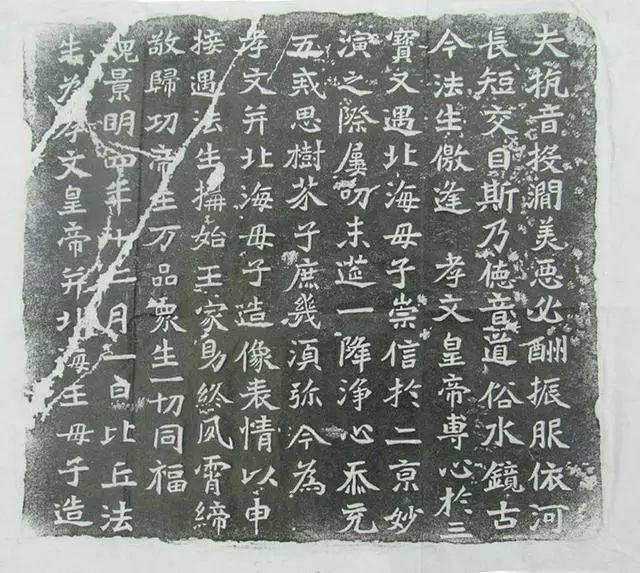 夫抗音投澗美惡必酬振服依河
長短交目斯乃德音道俗水鏡古
今法生儌逢 孝文皇帝專心於三
寶又遇北海母子崇信於二京妙
演之際屢叨末筵一降淨心忝充
五戒思樹芥子庶幾須弥今為
孝文并北海母子造像表情以申
接遇法生構始王家易終夙霄締
敬歸功帝王万品眾生一切同福
魏景明四年十二月一日比丘法
生為孝文皇帝并北海王母子造